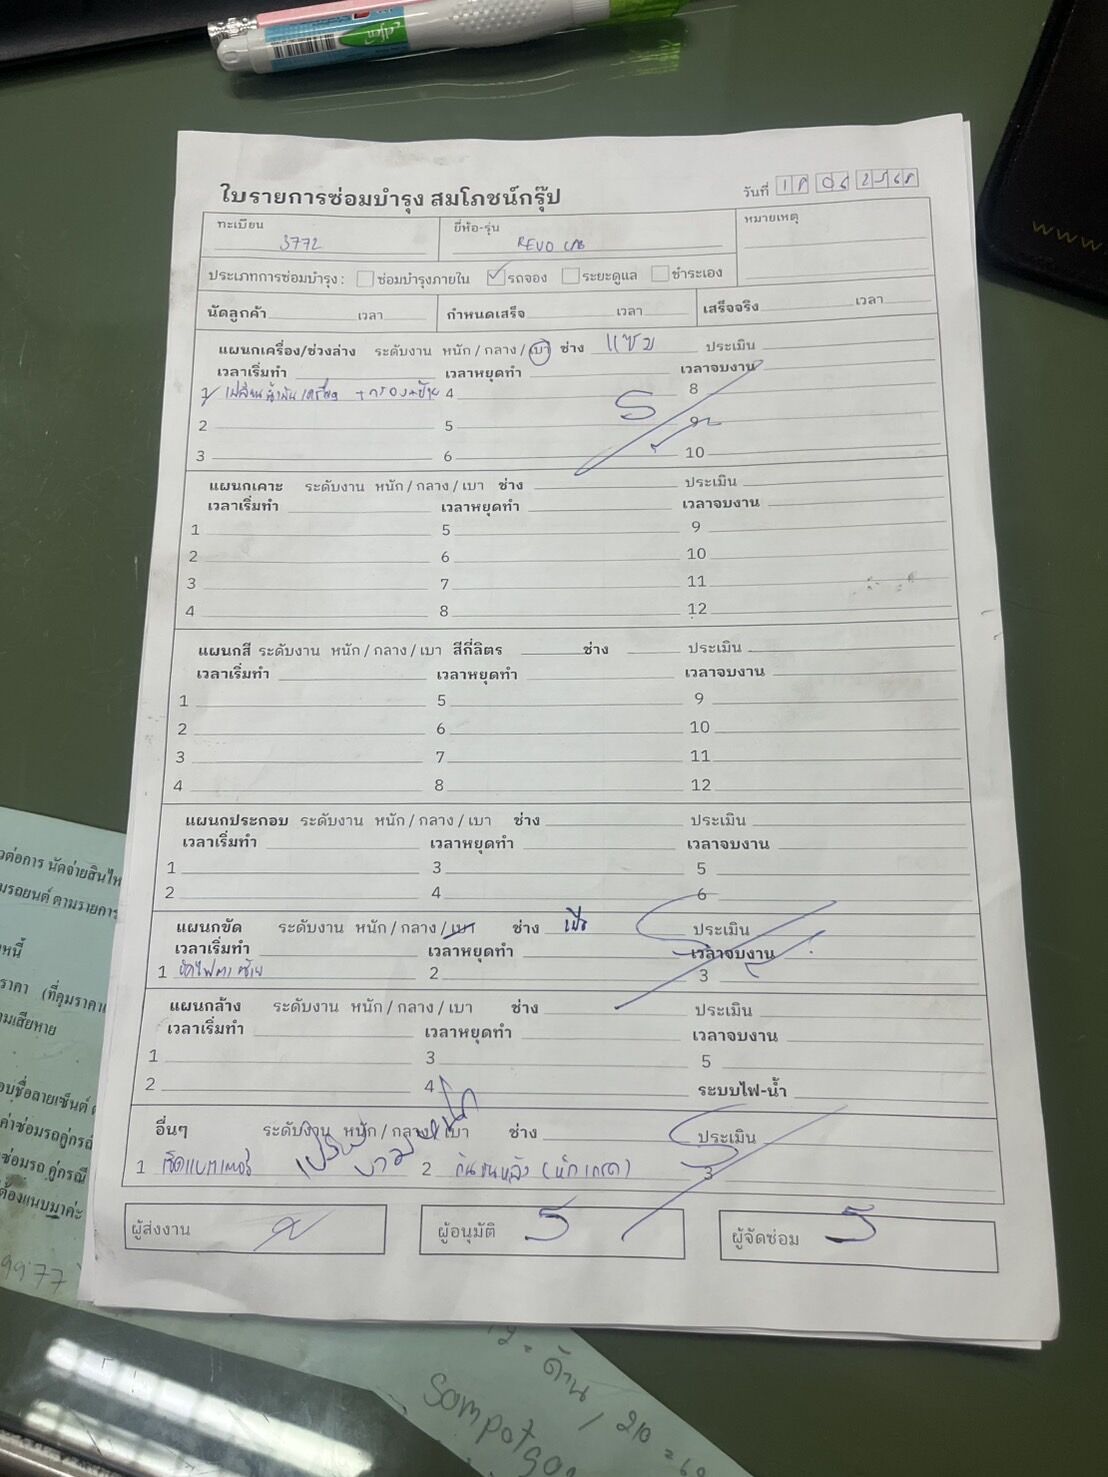 ใบรายการซ่อมบำรุง สมโภชน์กรุ๊ป
วันที่ 18 06 2568
ทะเบียน 3772 ยี่ห้อ-รุ่น REVO CAB หมายเหตุ
ประเภทการซ่อมบำรุง : ซ่อมบำรุงภายใน รถจอง ระยะดูแล ชำระเอง
นัดลูกค้า เวลา กำหนดเสร็จ เวลา เสร็จจริง เวลา
แผนกเครื่อง/ช่วงล่าง ระดับงาน หนัก / กลาง / เบา ช่าง แซม ประเมิน
เวลาเริ่มทำ เวลาหยุดทำ เวลาจบงาน
1 เปลี่ยนน้ำมันเครื่อง +กรอง+ป้าย 4 8
2 5 9
3 6 10
แผนกเคาะ ระดับงาน หนัก / กลาง / เบา ช่าง ประเมิน
เวลาเริ่มทำ เวลาหยุดทำ เวลาจบงาน
1 5 9
2 6 10
3 7 11
4 8 12
แผนกสี ระดับงาน หนัก / กลาง / เบา สีกี่ลิตร ช่าง ประเมิน
เวลาเริ่มทำ เวลาหยุดทำ เวลาจบงาน
1 5 9
2 6 10
3 7 11
4 8 12
แผนกประกอบ ระดับงาน หนัก / กลาง / เบา ช่าง ประเมิน
เวลาเริ่มทำ เวลาหยุดทำ เวลาจบงาน
1 3 5
2 4 6
แผนกขัด ระดับงาน หนัก / กลาง / เบา ช่าง ประเมิน
เวลาเริ่มทำ เวลาหยุดทำ เวลาจบงาน
1 ขัดไฟตาซ้าย 2 3
แผนกล้าง ระดับงาน หนัก / กลาง / เบา ช่าง ประเมิน
เวลาเริ่มทำ เวลาหยุดทำ เวลาจบงาน
1 3 5
2 4 ระบบไฟ-น้ำ
อื่นๆ ระดับงาน หนัก / กลาง / เบา ช่าง ประเมิน
1 เช็คแบตเตอรี่ 2 กันชนหลัง 3
ผู้ส่งงาน ผู้อนุมัติ ผู้จัดซ่อม
วต่อการ นัดจ่ายสินไห
มรถยนต์ ตามรายการ
หนี้
ราคา (ที่คุมราคา
ามเสียหาย
อบชื่อลายเซ็นต์
ค่าซ่อมรถคู่กรณี
ซ่อมรถ คู่กรณี
ต้องแนบมาค่ะ
9977
ด้าน / 210
Sompot
www